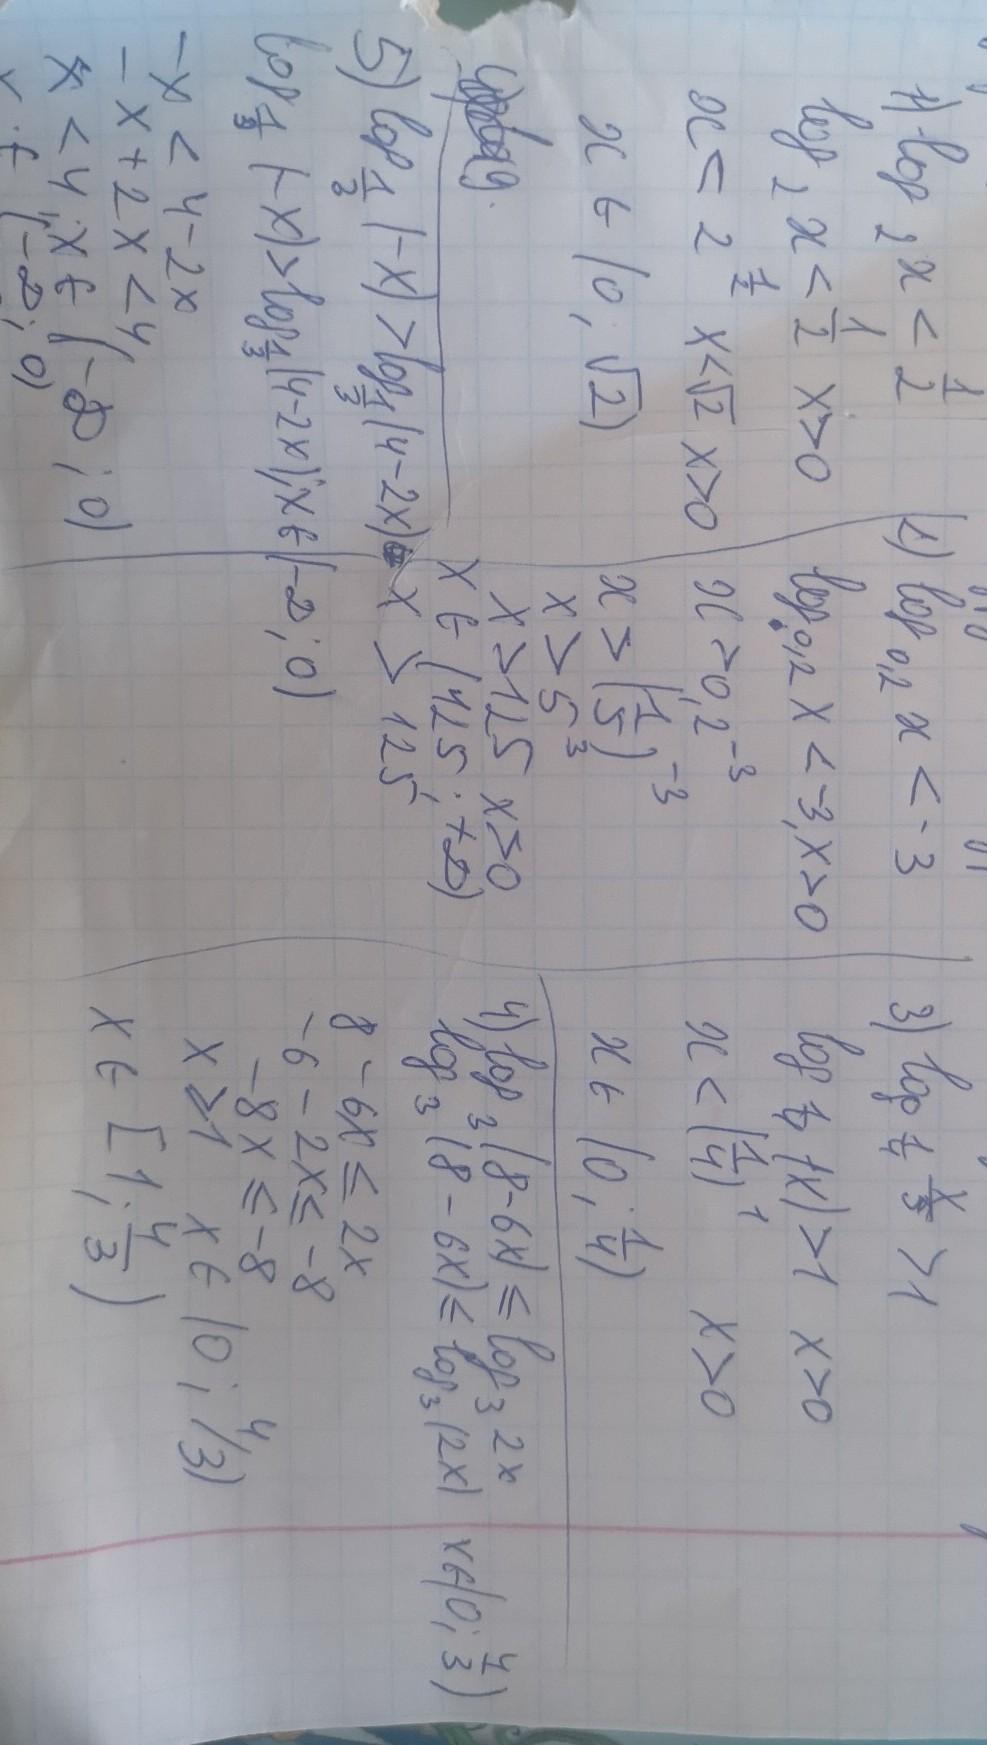 1) log₂ x < 1/2
log₂ x < 1/2 x>0
x < 2^(1/2) x<√2 x>0
x ∈ (0; √2)
2) log₀,₂ x < -3
log₀,₂ x < -3, x>0
x > 0,2⁻³
x > (1/5)⁻³
x > 5³
x > 125 x>0
x ∈ (125; +∞)
x > 125
3) log 1/4 x > 1
log 1/4 (x) > 1 x>0
x < (1/4)¹ x>0
x ∈ (0; 1/4)
4) log₃ (8-6x) ≤ log₃ 2x
log₃ (8-6x) ≤ log₃ (2x) x∈(0; 4/3)
8 - 6x ≤ 2x
-6 - 2x ≤ -8
-8x ≤ -8
x ≥ 1 x ∈ (0; 4/3)
x ∈ [1; 4/3)
5) log 1/2 (-x) > log 1/3 (4-2x)
log 1/3 (-x) > log 1/3 (4-2x), x∈(-∞; 0)
-x < 4-2x
-x + 2x < 4
x < 4, x ∈ (-∞; 0)
x ∈ (-∞; 0)